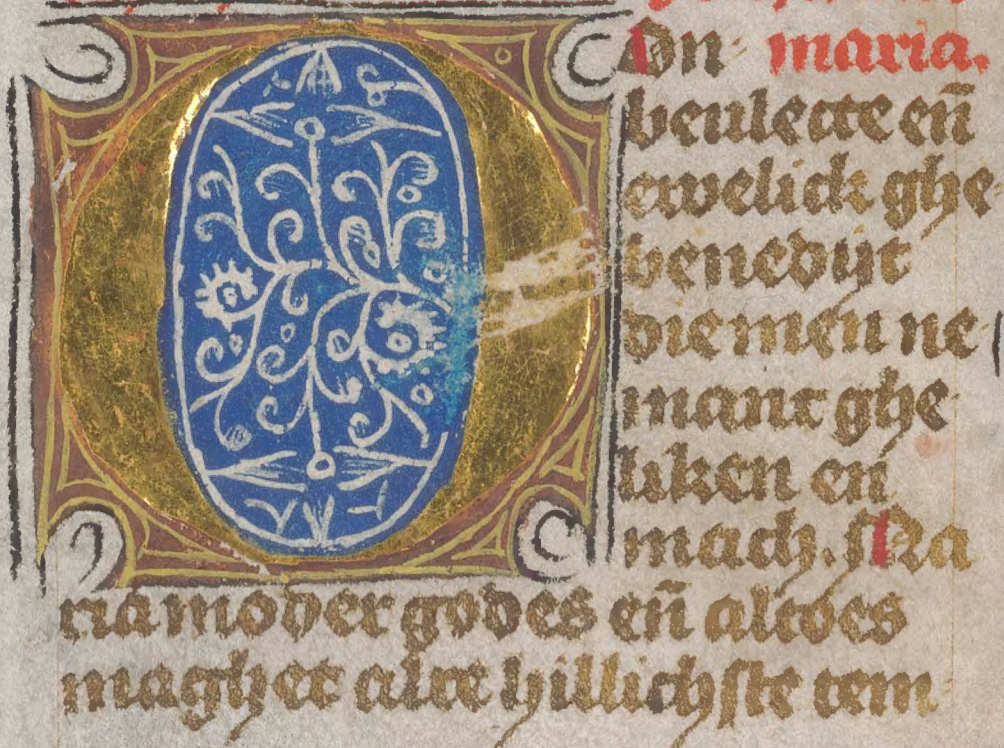 O On- maria.
beulecte en̄
ewelick ghe
benedijt
die men ne
mant ghe
liken en
mach. Ma
ria moder godes en̄ altoes
maghet alre hillichste tem-